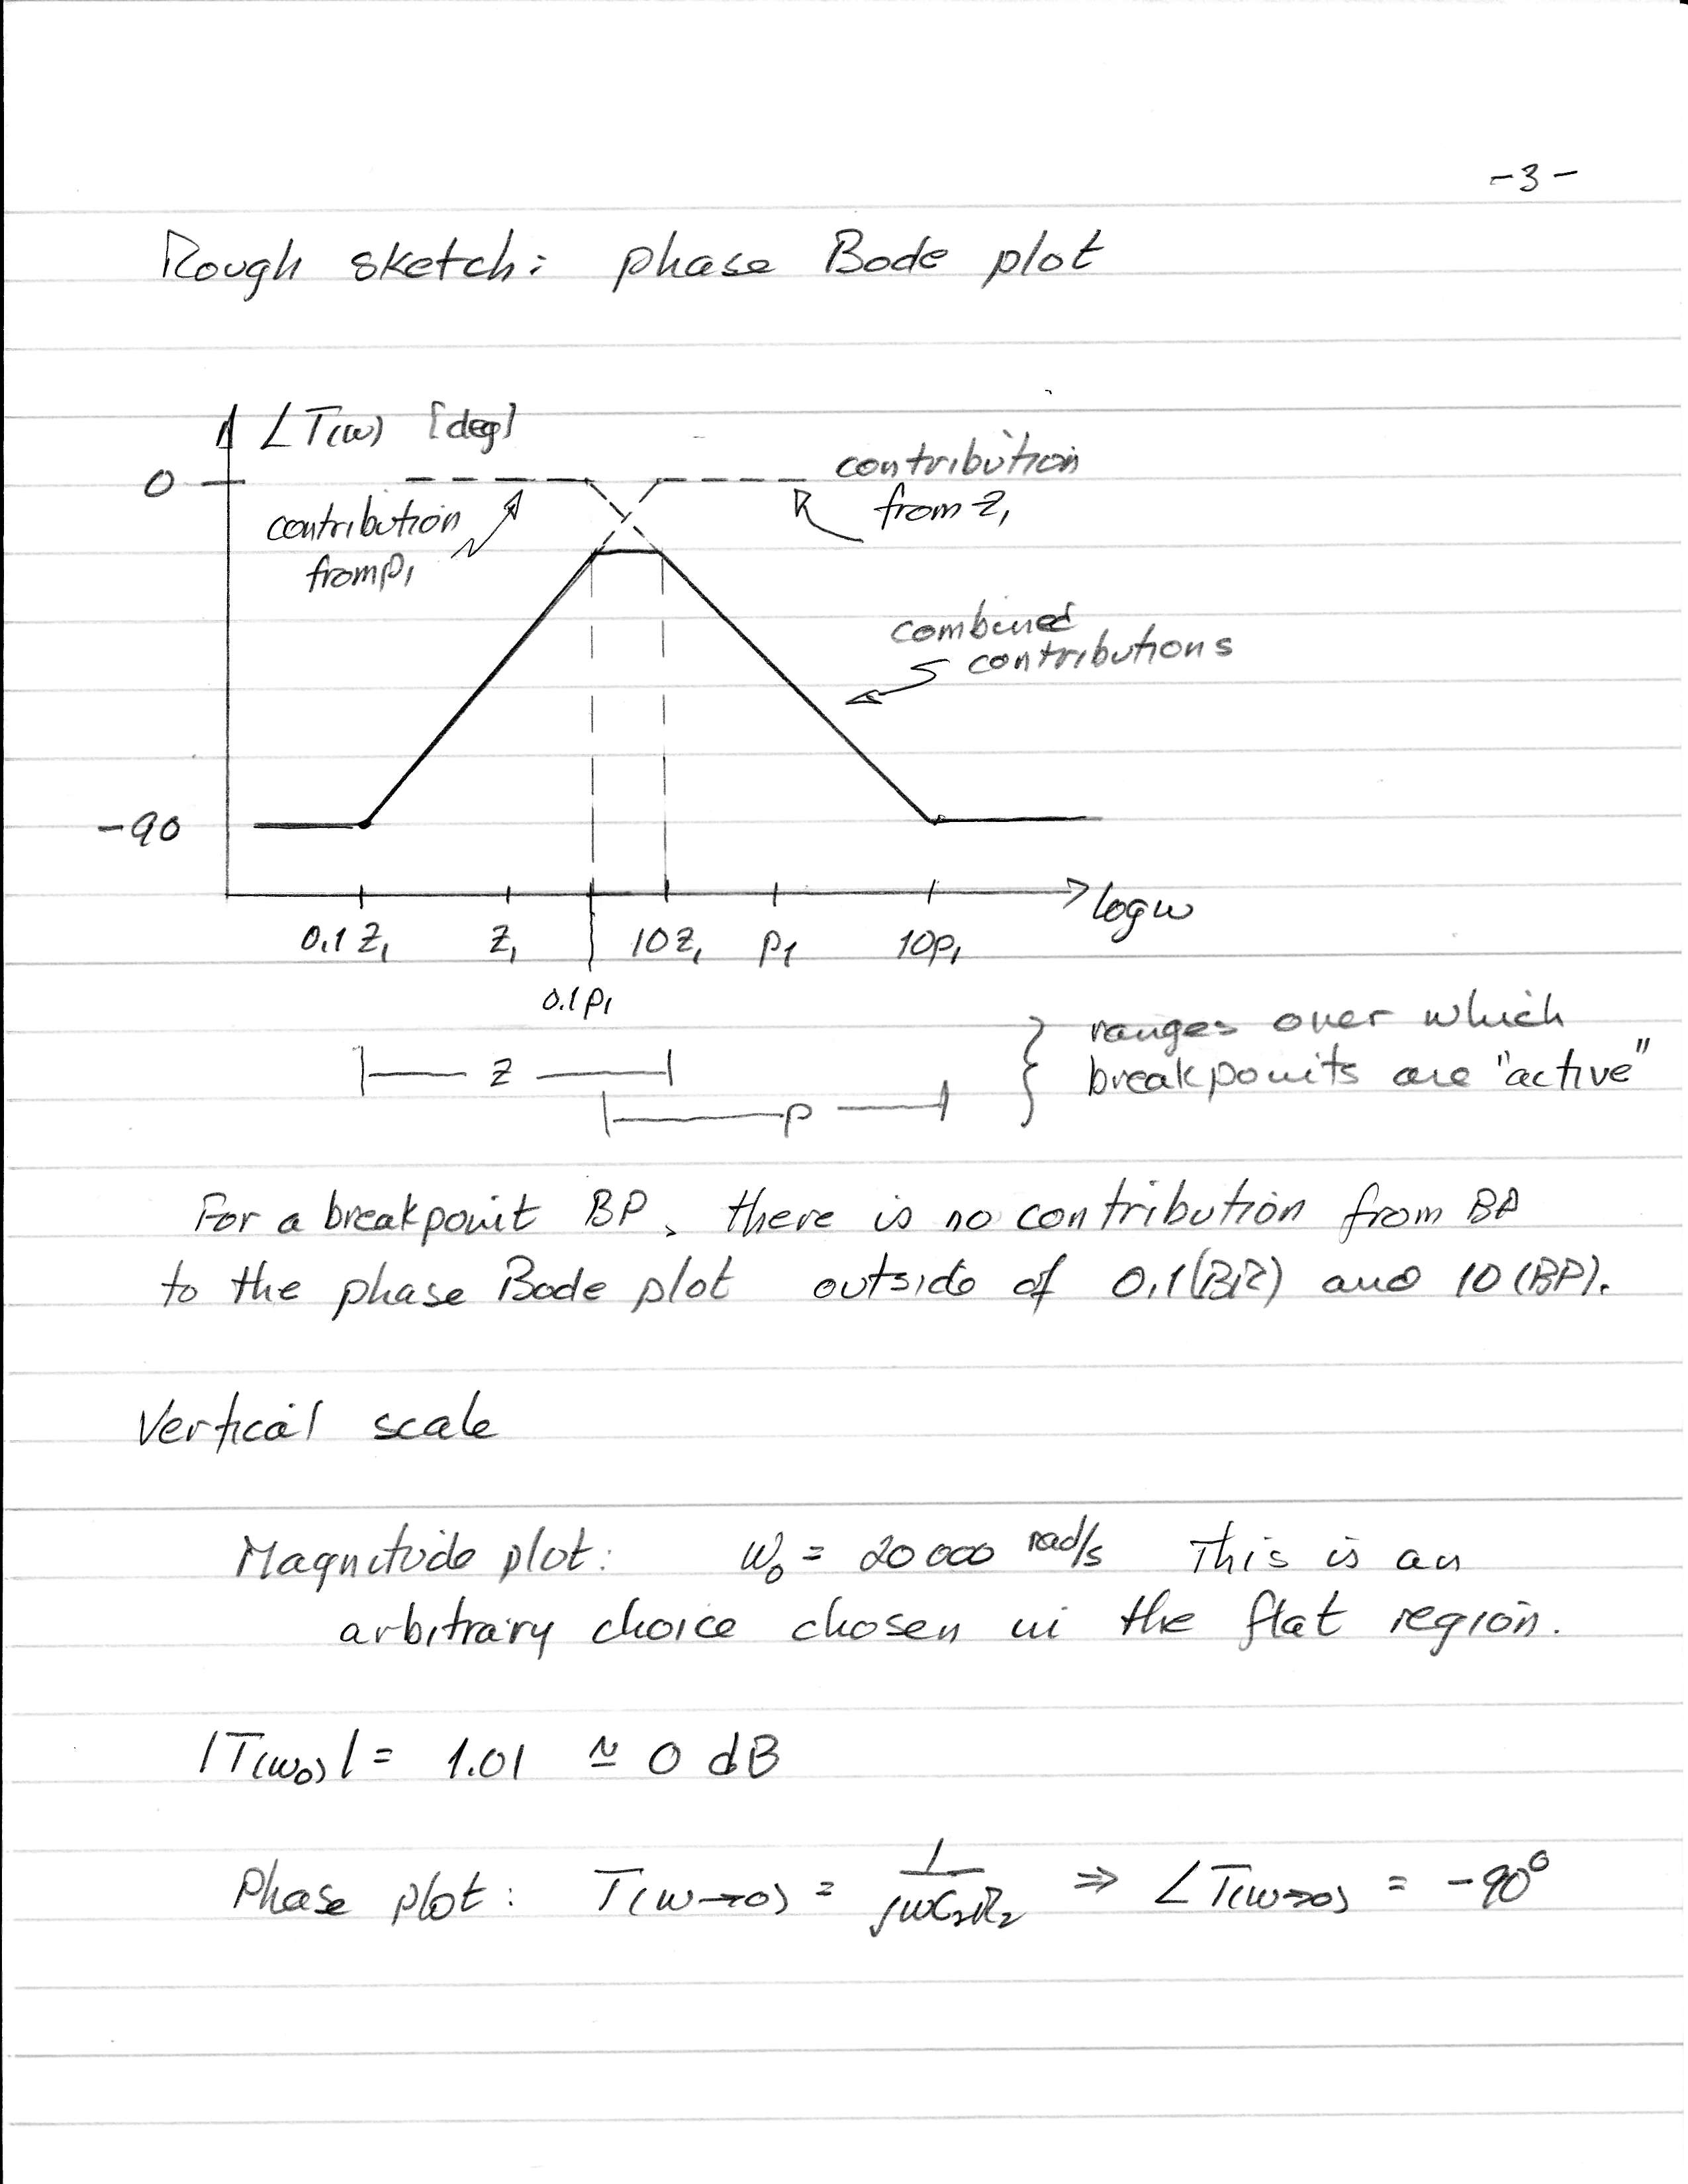 -3-
Rough sketch: phase Bode plot
∠T(ω) [deg]
0
contribution
from z₁
contribution
from p₁
combined
contributions
-90
log ω
0.1 z₁ z₁ 10 z₁ p₁ 10p₁
0.1 p₁
z
p
ranges over which
breakpoints are "active"
For a breakpoint BP, there is no contribution from BP
to the phase Bode plot outside of 0.1(BP) and 10(BP).
Vertical scale
Magnitude plot: ω₀ = 20000 rad/s This is an
arbitrary choice chosen in the flat region.
|T(ω₀)| = 1.01 ≃ 0 dB
Phase plot: T(ω→0) = 1/(jωC₂R₂) ⇒ ∠T(ω→0) = -90°